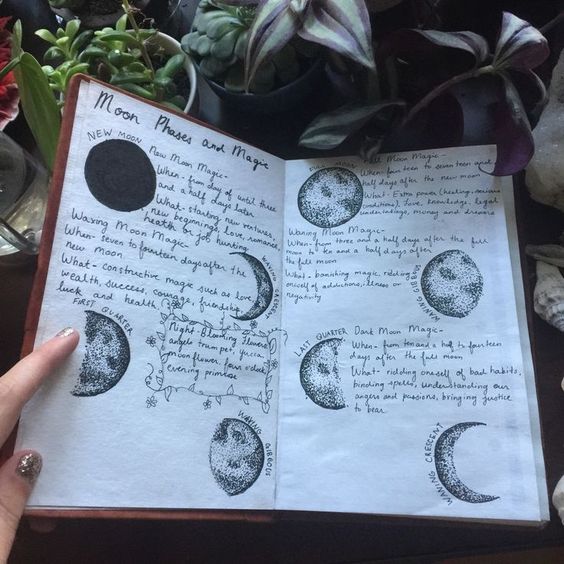 Moon Phases and Magic
NEW MOON
New Moon Magic-
When- from day of until three
and a half days later
What- starting new ventures,
new beginnings, love, romance,
health or job hunting
Waxing Moon Magic-
When- seven to fourteen days after the
new moon
What- constructive magic such as love,
wealth, success, courage, friendship,
luck, and health
WAXING CRESCENT
FIRST QUARTER
Night-Blooming Flowers
angels trumpet, yucca
moon flower, four o'clock
evening primrose
WAXING GIBBOUS
FULL MOON
Full Moon Magic-
When- fourteen to seventeen and
half days after the new moon
What- Extra power (healing,
conditions), love, knowledge, legal
undertakings, money and dreams
Waning Moon Magic-
When- from three and a half days after the full
moon to ten and a half days after
the full moon
What- banishing magic, ridding
oneself of addictions, illness or
negativity
WANING GIBBOUS
LAST QUARTER
Dark Moon Magic-
When- from ten and a half to fourteen
days after the full moon
What- ridding oneself of bad habits,
binding spells, understanding our
angers and passions, bringing justice
to bear
WANING CRESCENT